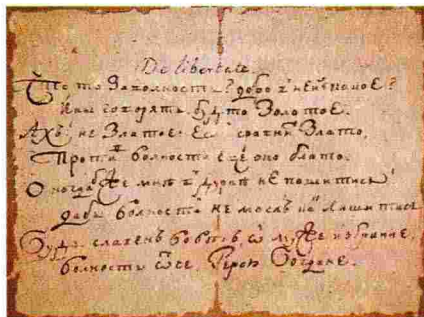 De libertate
Что то за волность? добро в ней какое?
Ины говорятъ, будто золотое.
Ахъ! не златое: Если сравнить злато,
Против волности еще оно блато.
О когда бы же мнѣ в дурнѣ не пошитись!
дабы волности не
Будь славенъ вовѣкъ, ѡ муже избранне,
волности ѡтче, Герою Богдане.